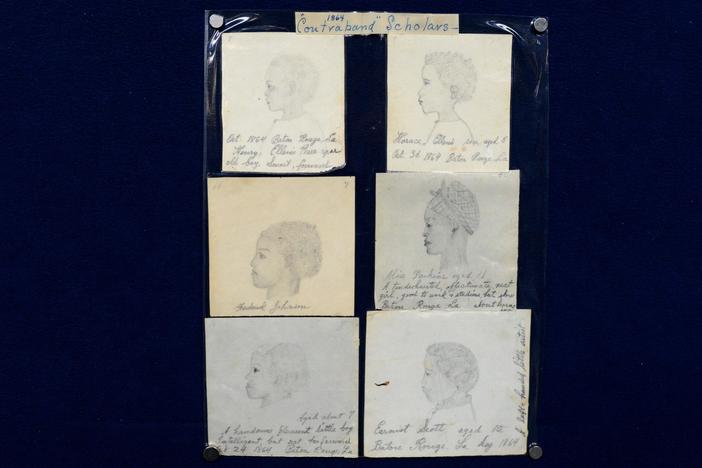 1864
"Contraband" Scholars—
Oct. 1864 Baton Rouge, La
Henry, Ellen's three year
old boy. Smart, forward
Horace, Ellen's son, aged 5
Oct. 30 1864 Baton Rouge, La
Frederick Johnson
Miss Perkins aged 11
A tenderhearted, affectionate, neat
girl, good to work & studious, but slow
Baton Rouge La
Aged about 7
A handsome, pleasant little boy
Intelligent, but not
24 1864 Baton Rouge, La
Earnist Scott aged 12
Batone Rouge, La Aug 1864
A left-handed little artist